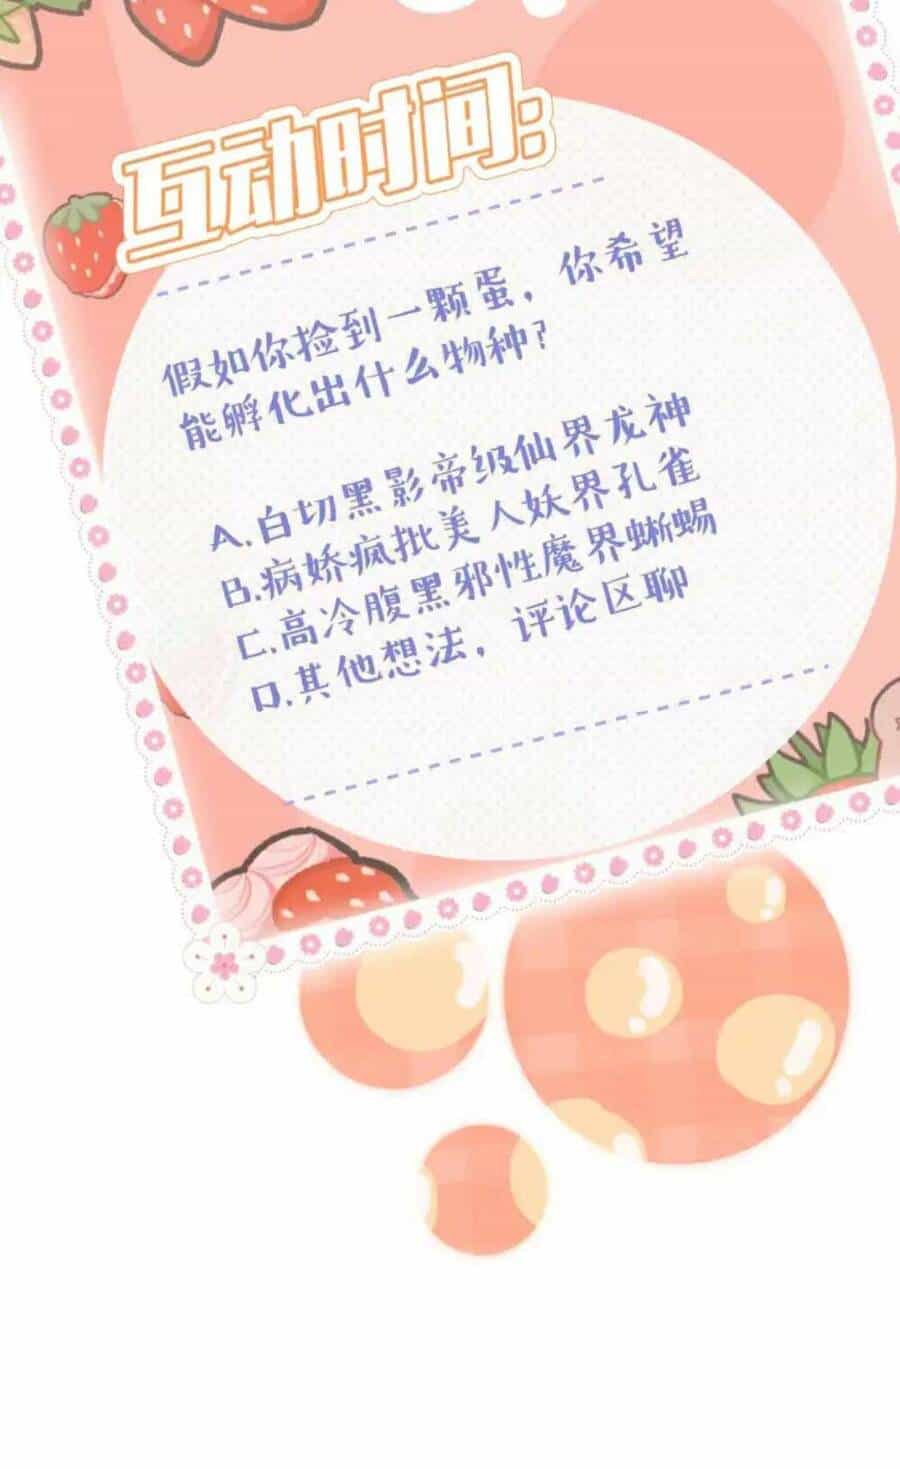 互动时间:
假如你捡到一颗蛋，你希望
能孵化出什么物种？
A.白切黑影帝级仙界龙神
B.病娇疯批美人妖界孔雀
C.高冷腹黑邪性魔界蜥蜴
D.其他想法，评论区聊